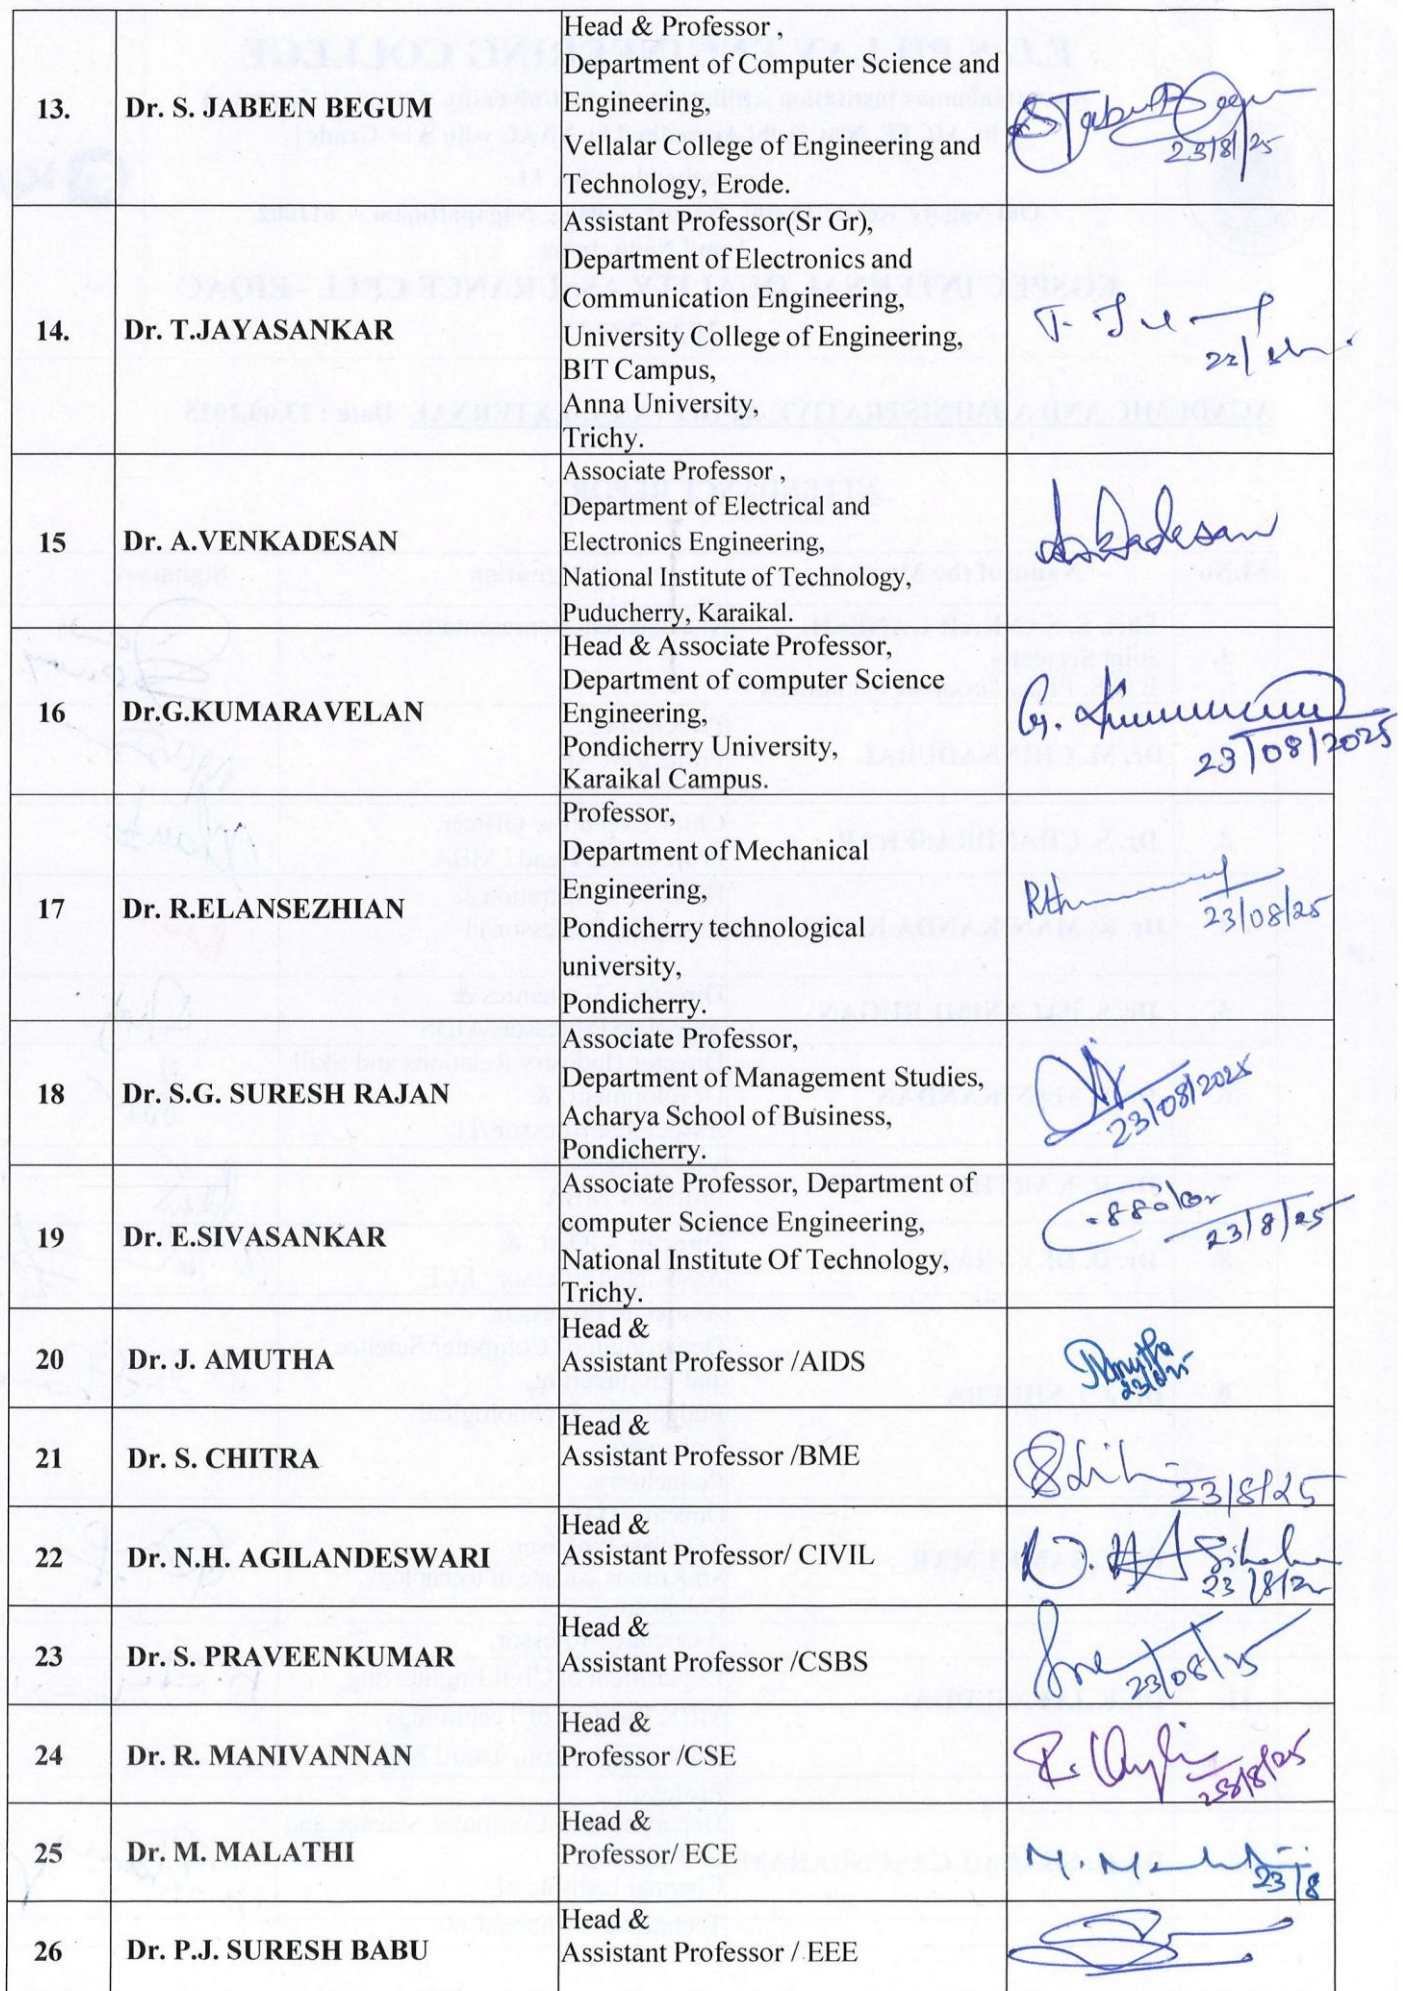 13.
Dr. S. JABEEN BEGUM
Head & Professor ,
Department of Computer Science and
Engineering,
Vellalar College of Engineering and
Technology, Erode.
23/8/25
14.
Dr. T.JAYASANKAR
Assistant Professor(Sr Gr),
Department of Electronics and
Communication Engineering,
University College of Engineering,
BIT Campus,
Anna University,
Trichy.
15
Dr. A.VENKADESAN
Associate Professor ,
Department of Electrical and
Electronics Engineering,
National Institute of Technology,
Puducherry, Karaikal.
16
Dr.G.KUMARAVELAN
Head & Associate Professor,
Department of computer Science
Engineering,
Pondicherry University,
Karaikal Campus.
23/08/2025
17
Dr. R.ELANSEZHIAN
Professor,
Department of Mechanical
Engineering,
Pondicherry technological
university,
Pondicherry.
23/08/25
18
Dr. S.G. SURESH RAJAN
Associate Professor,
Department of Management Studies,
Acharya School of Business,
Pondicherry.
23/08/2025
19
Dr. E.SIVASANKAR
Associate Professor, Department of
computer Science Engineering,
National Institute Of Technology,
Trichy.
23/8/25
20
Dr. J. AMUTHA
Head &
Assistant Professor /AIDS
21
Dr. S. CHITRA
Head &
Assistant Professor /BME
23/8/25
22
Dr. N.H. AGILANDESWARI
Head &
Assistant Professor/ CIVIL
23
Dr. S. PRAVEENKUMAR
Head &
Assistant Professor /CSBS
23/08/25
24
Dr. R. MANIVANNAN
Head &
Professor /CSE
25
Dr. M. MALATHI
Head &
Professor/ ECE
23/8
26
Dr. P.J. SURESH BABU
Head &
Assistant Professor / EEE